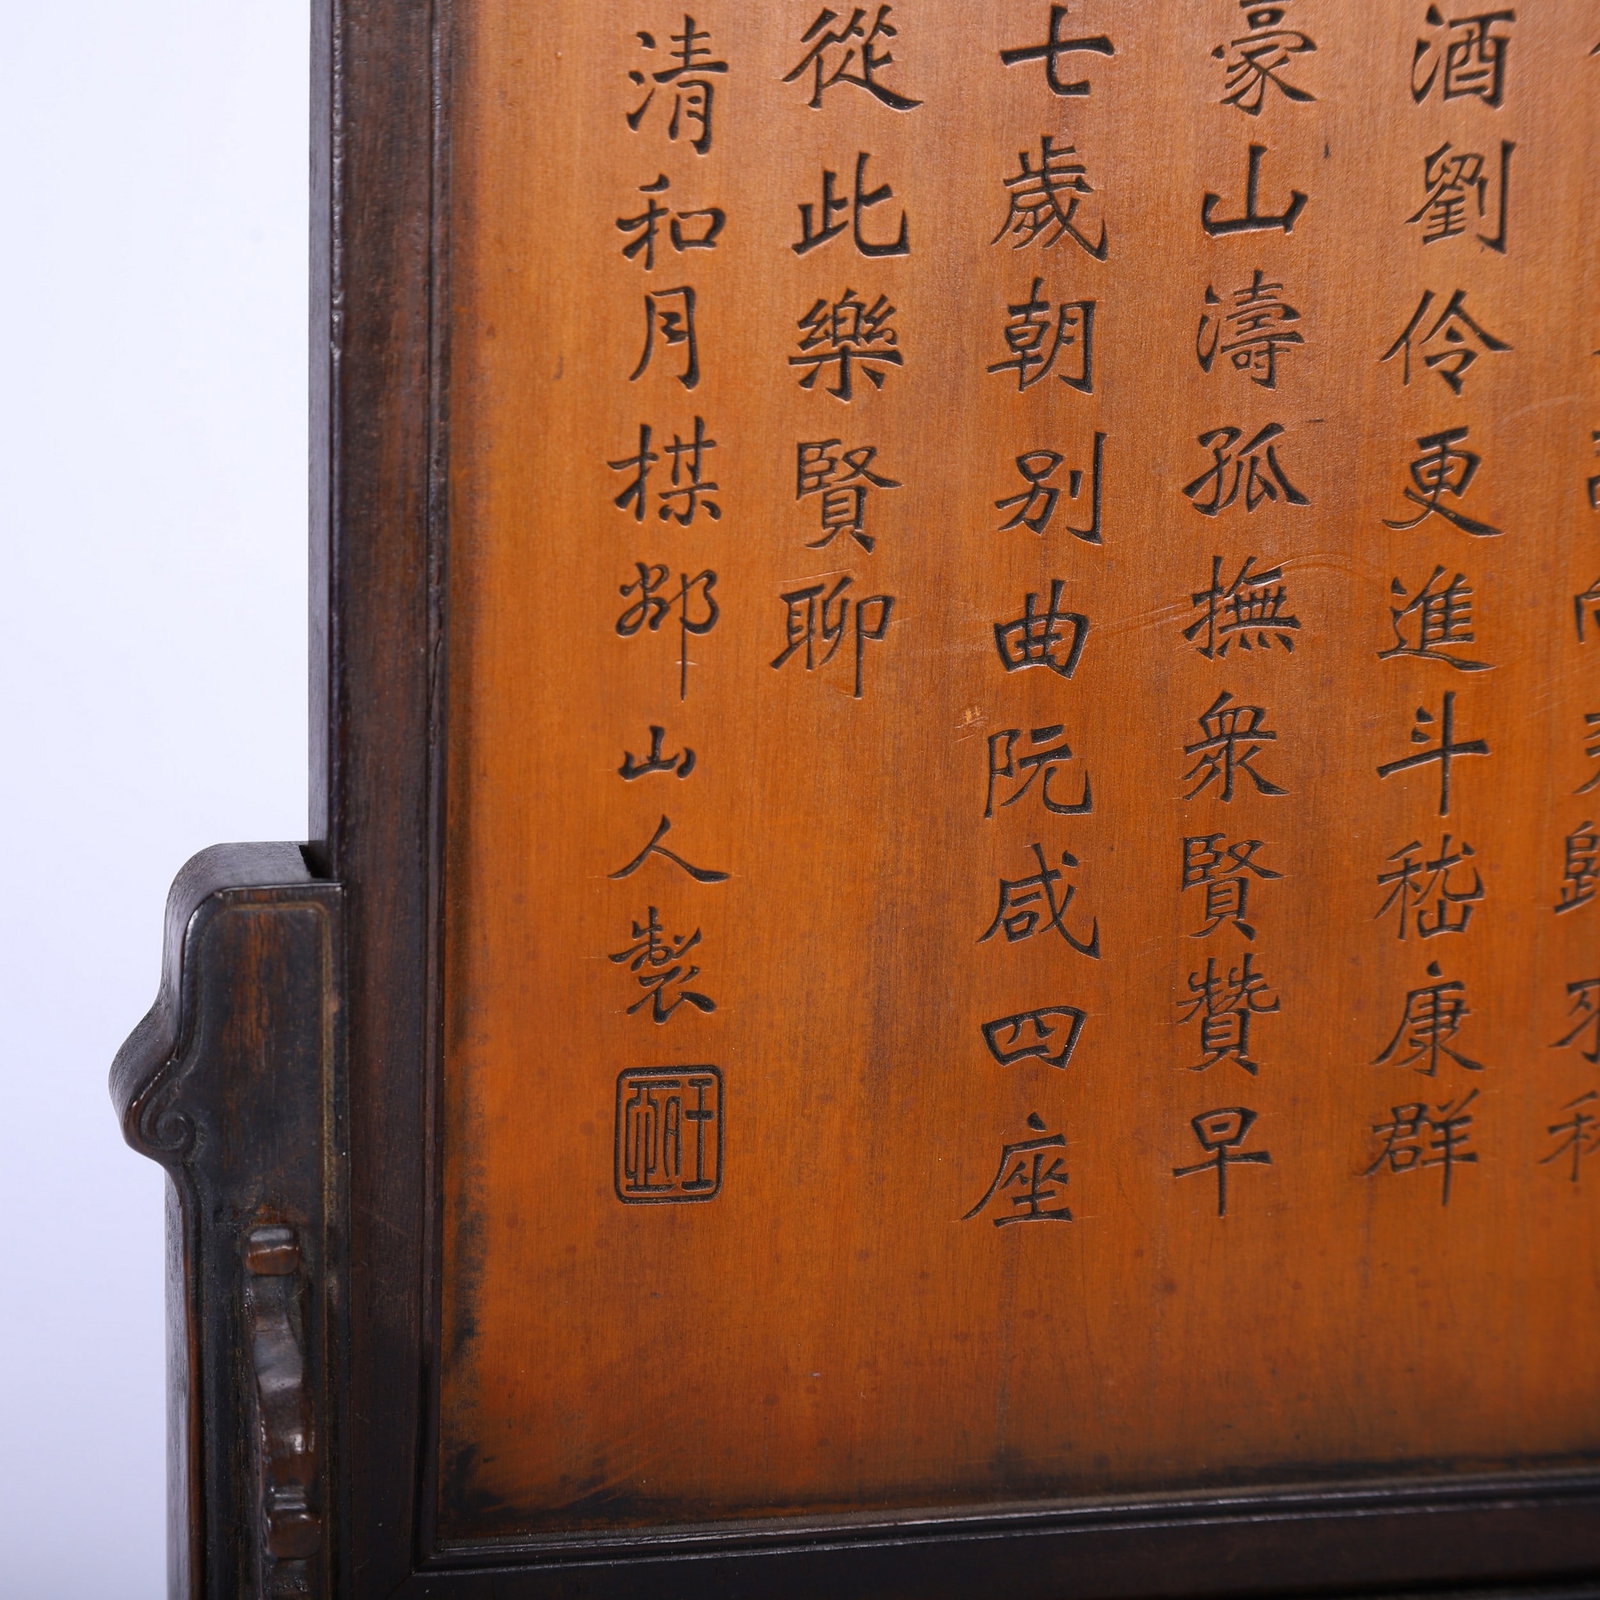 歸來
酒劉伶更進斗嵇康群
豪山濤孤撫衆賢贊早
七歲朝別曲阮咸四座
從此樂賢聊
清和月楳鄰山人製